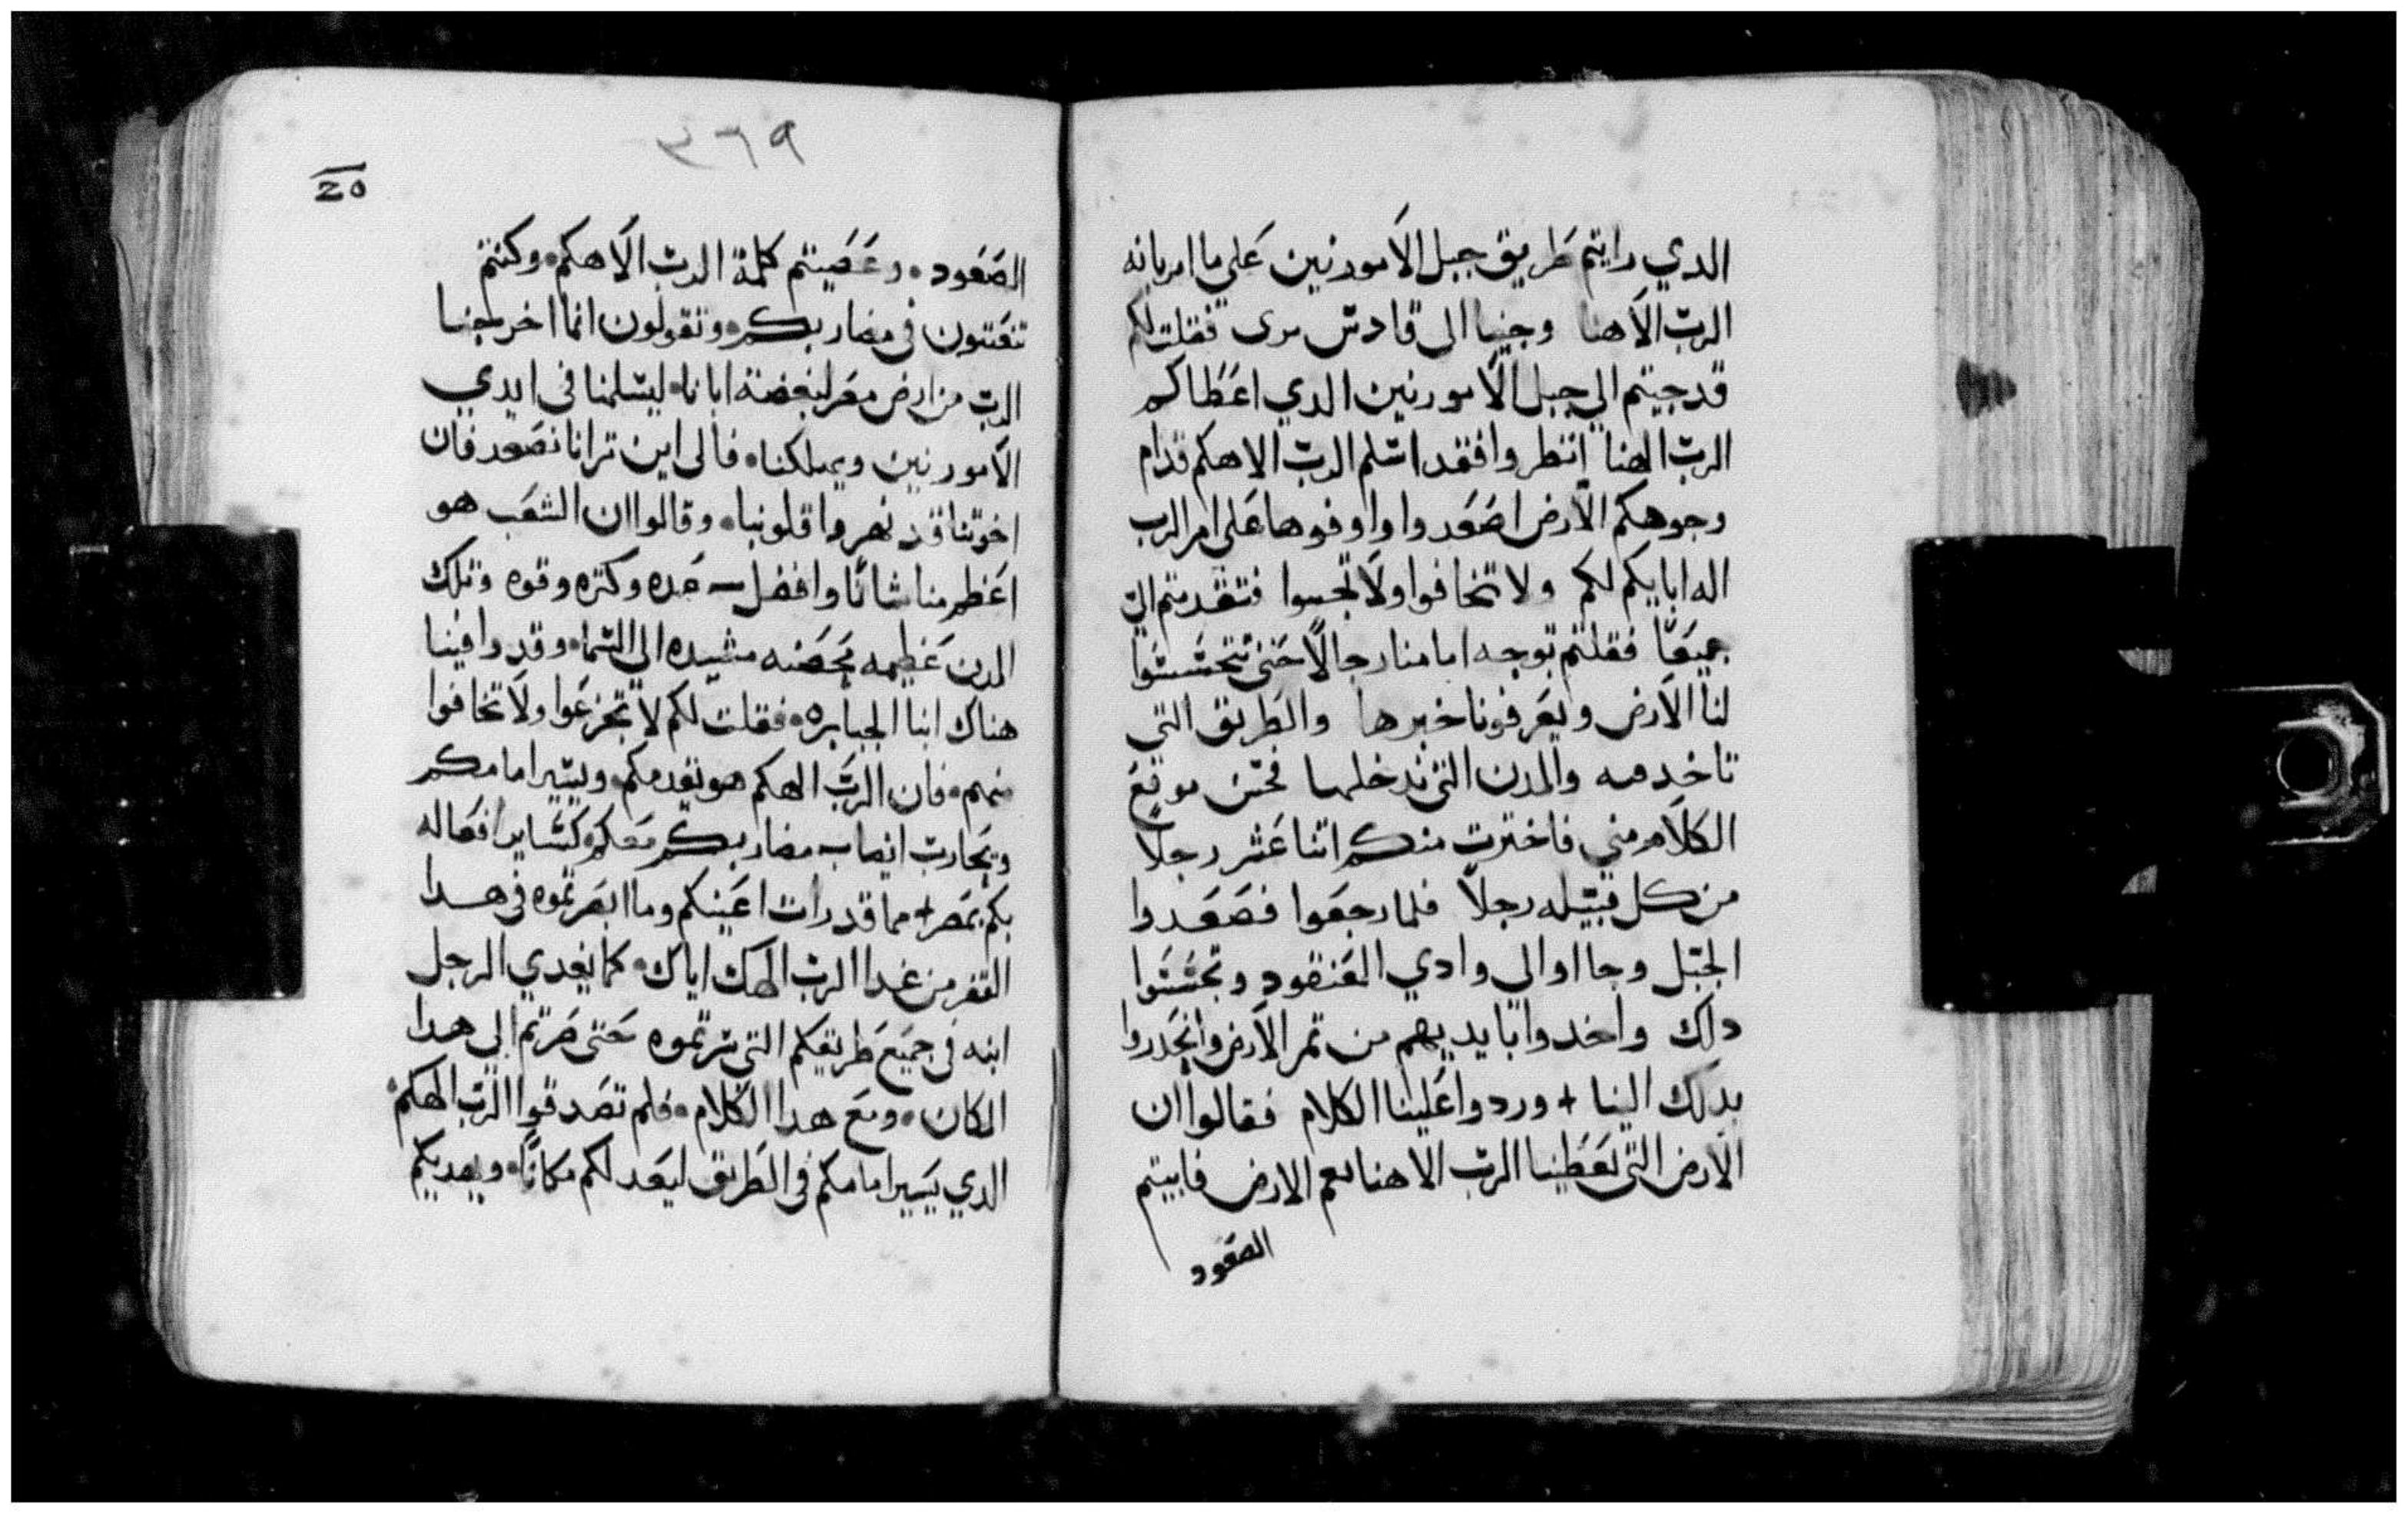 الدي رايتم طريق جبل الامورنين علي ما امرنا به
الرب الاهنا وجينا الى قادش برى فقلت لكم
قد جيتم الي جبل الامورنين الدي اعطاكم
الرب الهنا انظروا فقد اسلم الرب الاهكم قدام
وجوهكم الارض اصعدوا واوفوها على امر الرب
اله ابايكم لكم ولا تخافوا ولا تجبنوا فتقدمتم الي
جميعا فقلتم توجه امامنا رجالا حتى تتحسسوا
لنا الارض ويعرفونا خبرها والطريق التي
تاخد فيه والمدن التى ندخلها فحسن موقع
الكلام مني فاخترت منكم اتنا عشر رجلا
من كل قبيله رجلا فلما رجعوا فصعدوا
الجبل وجا اوالى وادي العنقود وتجسسوا
دلك واخدوا بايديهم من تمر الارض وانحدروا
بدلك الينا + وردوا علينا الكلام فقالوا ان
الارض التى يعطينا الرب الاهنا نعم الارض فابيتم
الصعود
٣٦٩
20
الصعود. وعصيتم كلمة الرب الاهكم. وكنتم
تفتنون في مضاربكم. وتقولون انما اخرجنا
الرب من ارض مصر لبغضته ايانا. ليسلمنا في ايدي
الامورنين ويهلكنا. فالى اين ترانا نصعد فان
اخوتنا قد نهروا قلوبنا. وقالوا ان الشعب هو
اعظم منا شانا وافضل عده وكتره وقوه وتلك
المدن عظيمه محصنه مشيده الى السما. وقد رافينا
هناك ابنا الجبابره. فقلت لكم لا تجزعوا ولا تخافوا
منهم. فان الرب الهكم هو يقدمكم. ويسير امامكم
ويحارب انصاب مضاربكم معكم. كساير افعاله
بكم بمصر + مما قد رات اعينكم وما ابصرتموه في هدا
القفر من غدا الرب الهك اياك. كما يغدي الرجل
ابنه في جميع طريقكم التى سرتموه حتى صرتم الي هدا
المكان. ومع هدا الكلام. فلم تصدقوا الرب الهكم.
الدي يسير امامكم في الطريق ليعد لكم مكانا. ويهديكم